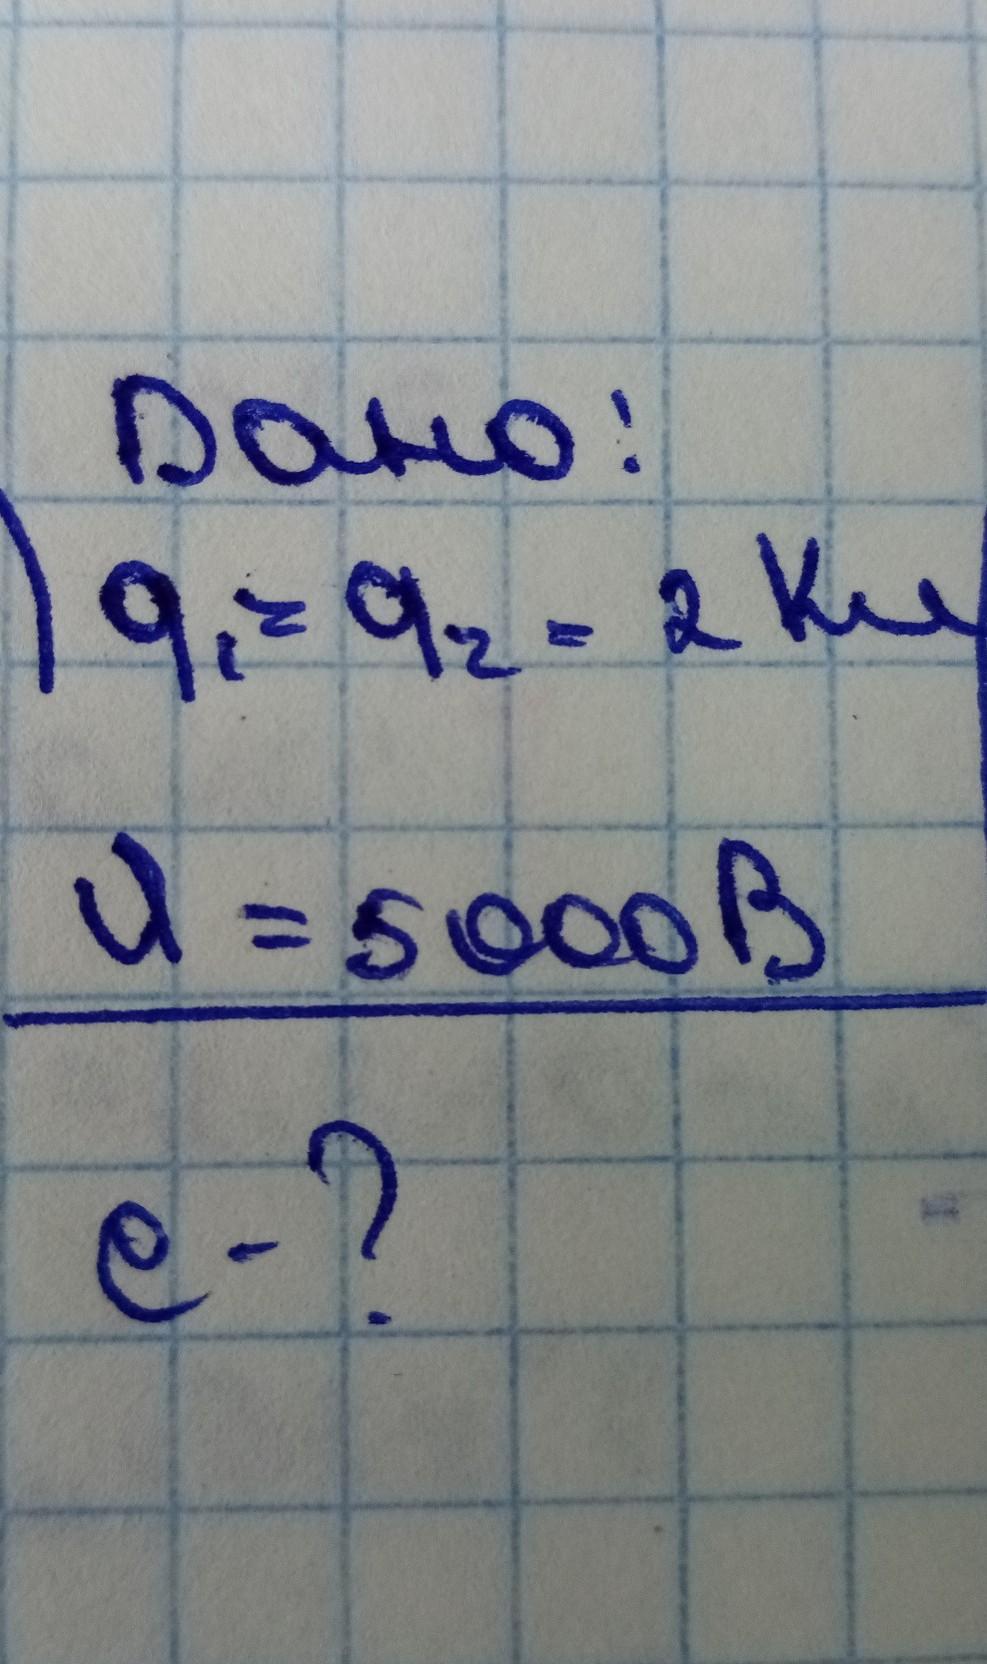 Дано:
q₁ = q₂ = 2 Кл
U = 5000 В
e - ?